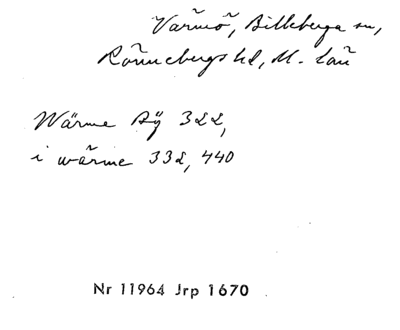 Värmö, Billeberga sn,
Rönnebergs hd, M. län
Wärme Bÿ 322,
i wärme 332, 440
Nr 11964 Jrp 1670